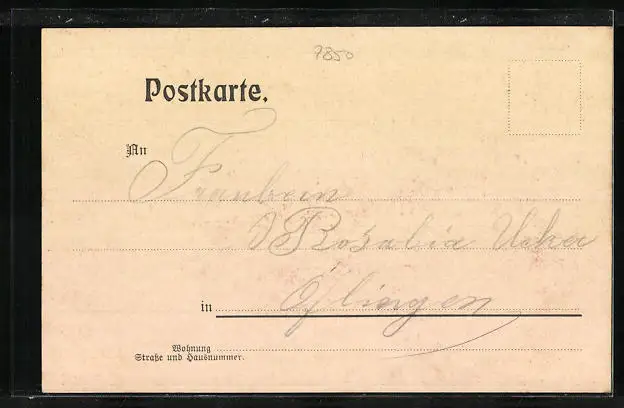 7850
Postkarte.
An
Fräulein
Rosalia
in Öflingen
Wohnung
Straße und Hausnummer.